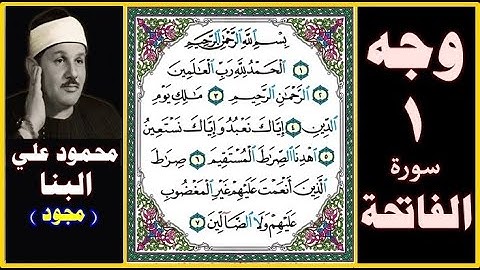 وجه
١
سورة
الفاتحة
بِسْمِ اللَّهِ الرَّحْمَٰنِ الرَّحِيمِ
١ الْحَمْدُ لِلَّهِ رَبِّ الْعَٰلَمِينَ
٢ الرَّحْمَٰنِ الرَّحِيمِ ٣ مَٰلِكِ يَوْمِ
الدِّينِ ٤ إِيَّاكَ نَعْبُدُ وَإِيَّاكَ نَسْتَعِينُ
٥ اهْدِنَا الصِّرَٰطَ الْمُسْتَقِيمَ ٦ صِرَٰطَ
الَّذِينَ أَنْعَمْتَ عَلَيْهِمْ غَيْرِ الْمَغْضُوبِ
عَلَيْهِمْ وَلَا الضَّالِّينَ ٧
محمود علي
البنا
( مجود )